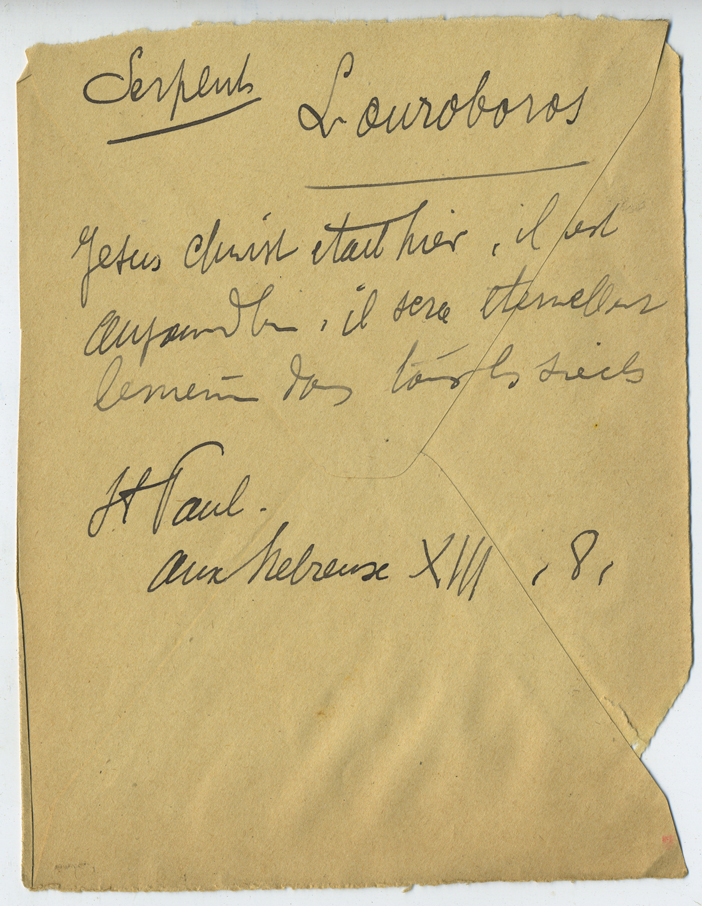 Serpent L'ouroboros
Jesus christ etait hier, il est
aujourd'hui, il sera eternellem
lememe dans tous les siecls
St Paul.
aux hebreuse XIII, 8,